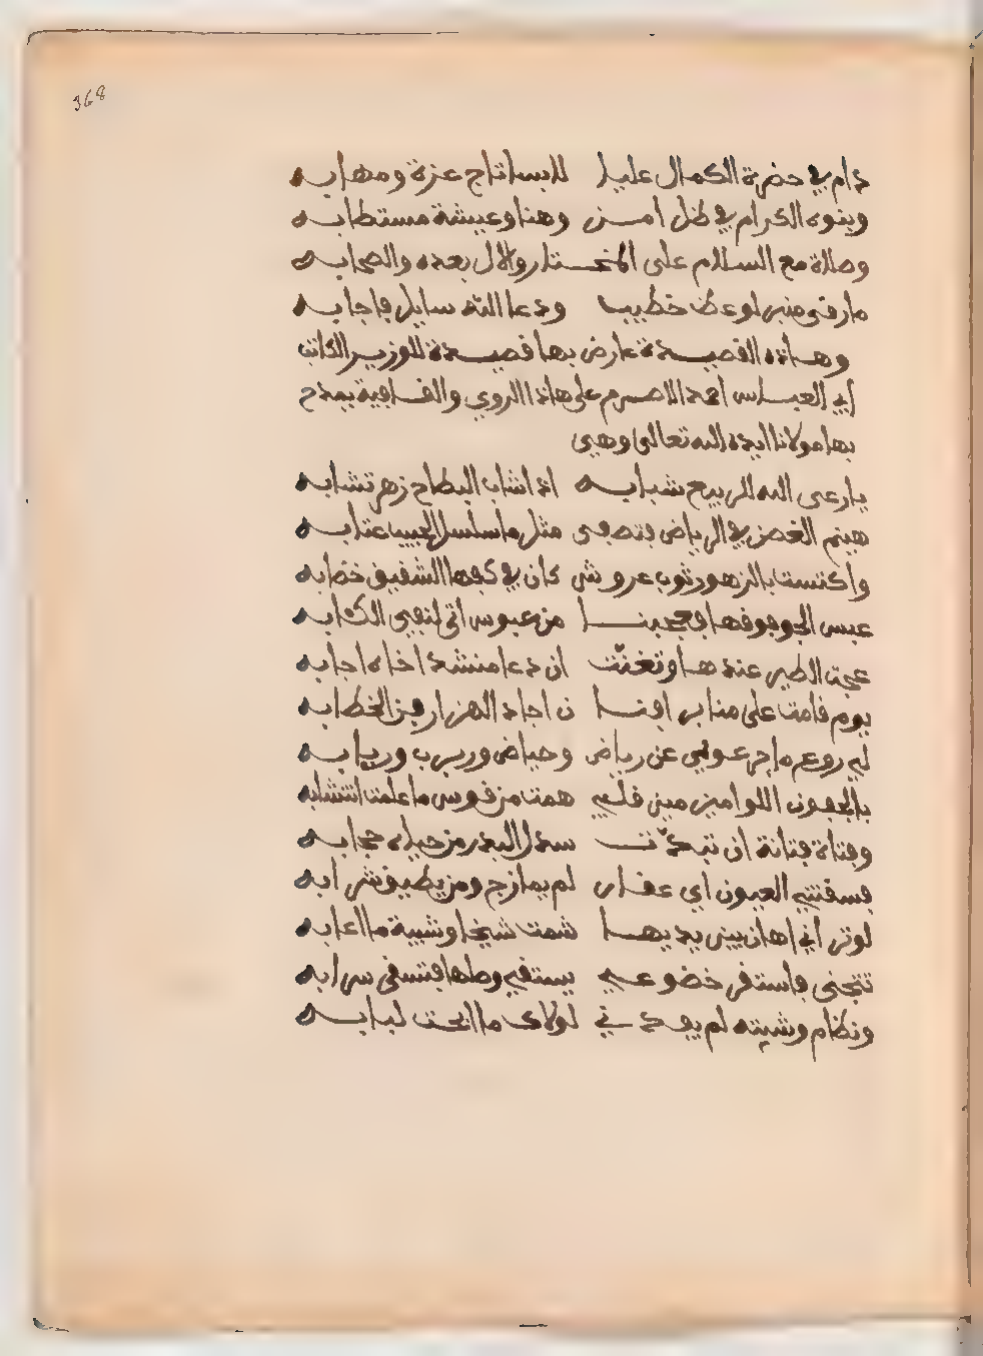 368
دام في حضرة الكمال عليا لابسا تاج عزة ومهابه
وبنوه الكرام في ظل امن وهنا وعيشة مستطابه
وصلاة مع السلام على المختار والال بعده والصحابه
ما رقى منبر لوعظ خطيب ودعا الله سايل فاجابه
وهاذه القصيدة عارض بها قصيدة للوزير الكاتب
أبي العباس احمد الاصرم على هاذا الروي والقافية يمدح
بها مولانا ايده الله تعالى وهي
يا رعى الله للربيع شبابه اذ اشاب البطاح زهر تشابه
هينم الغصن في الرياض فتصغي مثل ما سلسل الحبيب عتابه
واكتست بالزهور ثوب عروش كان في كفها الشقيق خضابه
عبس الجو فوقها فعجبنا من عبوس اتى لنفي الكئابه
عجت الطير عندها وتغنّت ان دعا منشد اخاه اجابه
يوم قامت على منابر افنا ن اجاد الهزار فن الخطابه
لي روع عن رياض وحياض وربرب وربابه
بالجفون اللوا قلبي همت من قوس ما علمت انتشابه
وفتاة فتانة ان تبدّت سدل البدر من حياه حجابه
فسقتني العيون اي عقار لم يمازج ومن يطيق شرابه
لو تراني اهان بين يديها شمت شيخا وشيبة ما اعابه
تتجنى فاستقر خضوعي سرابه
ونظام وشيته لم يفدني لولاك ما لبابه